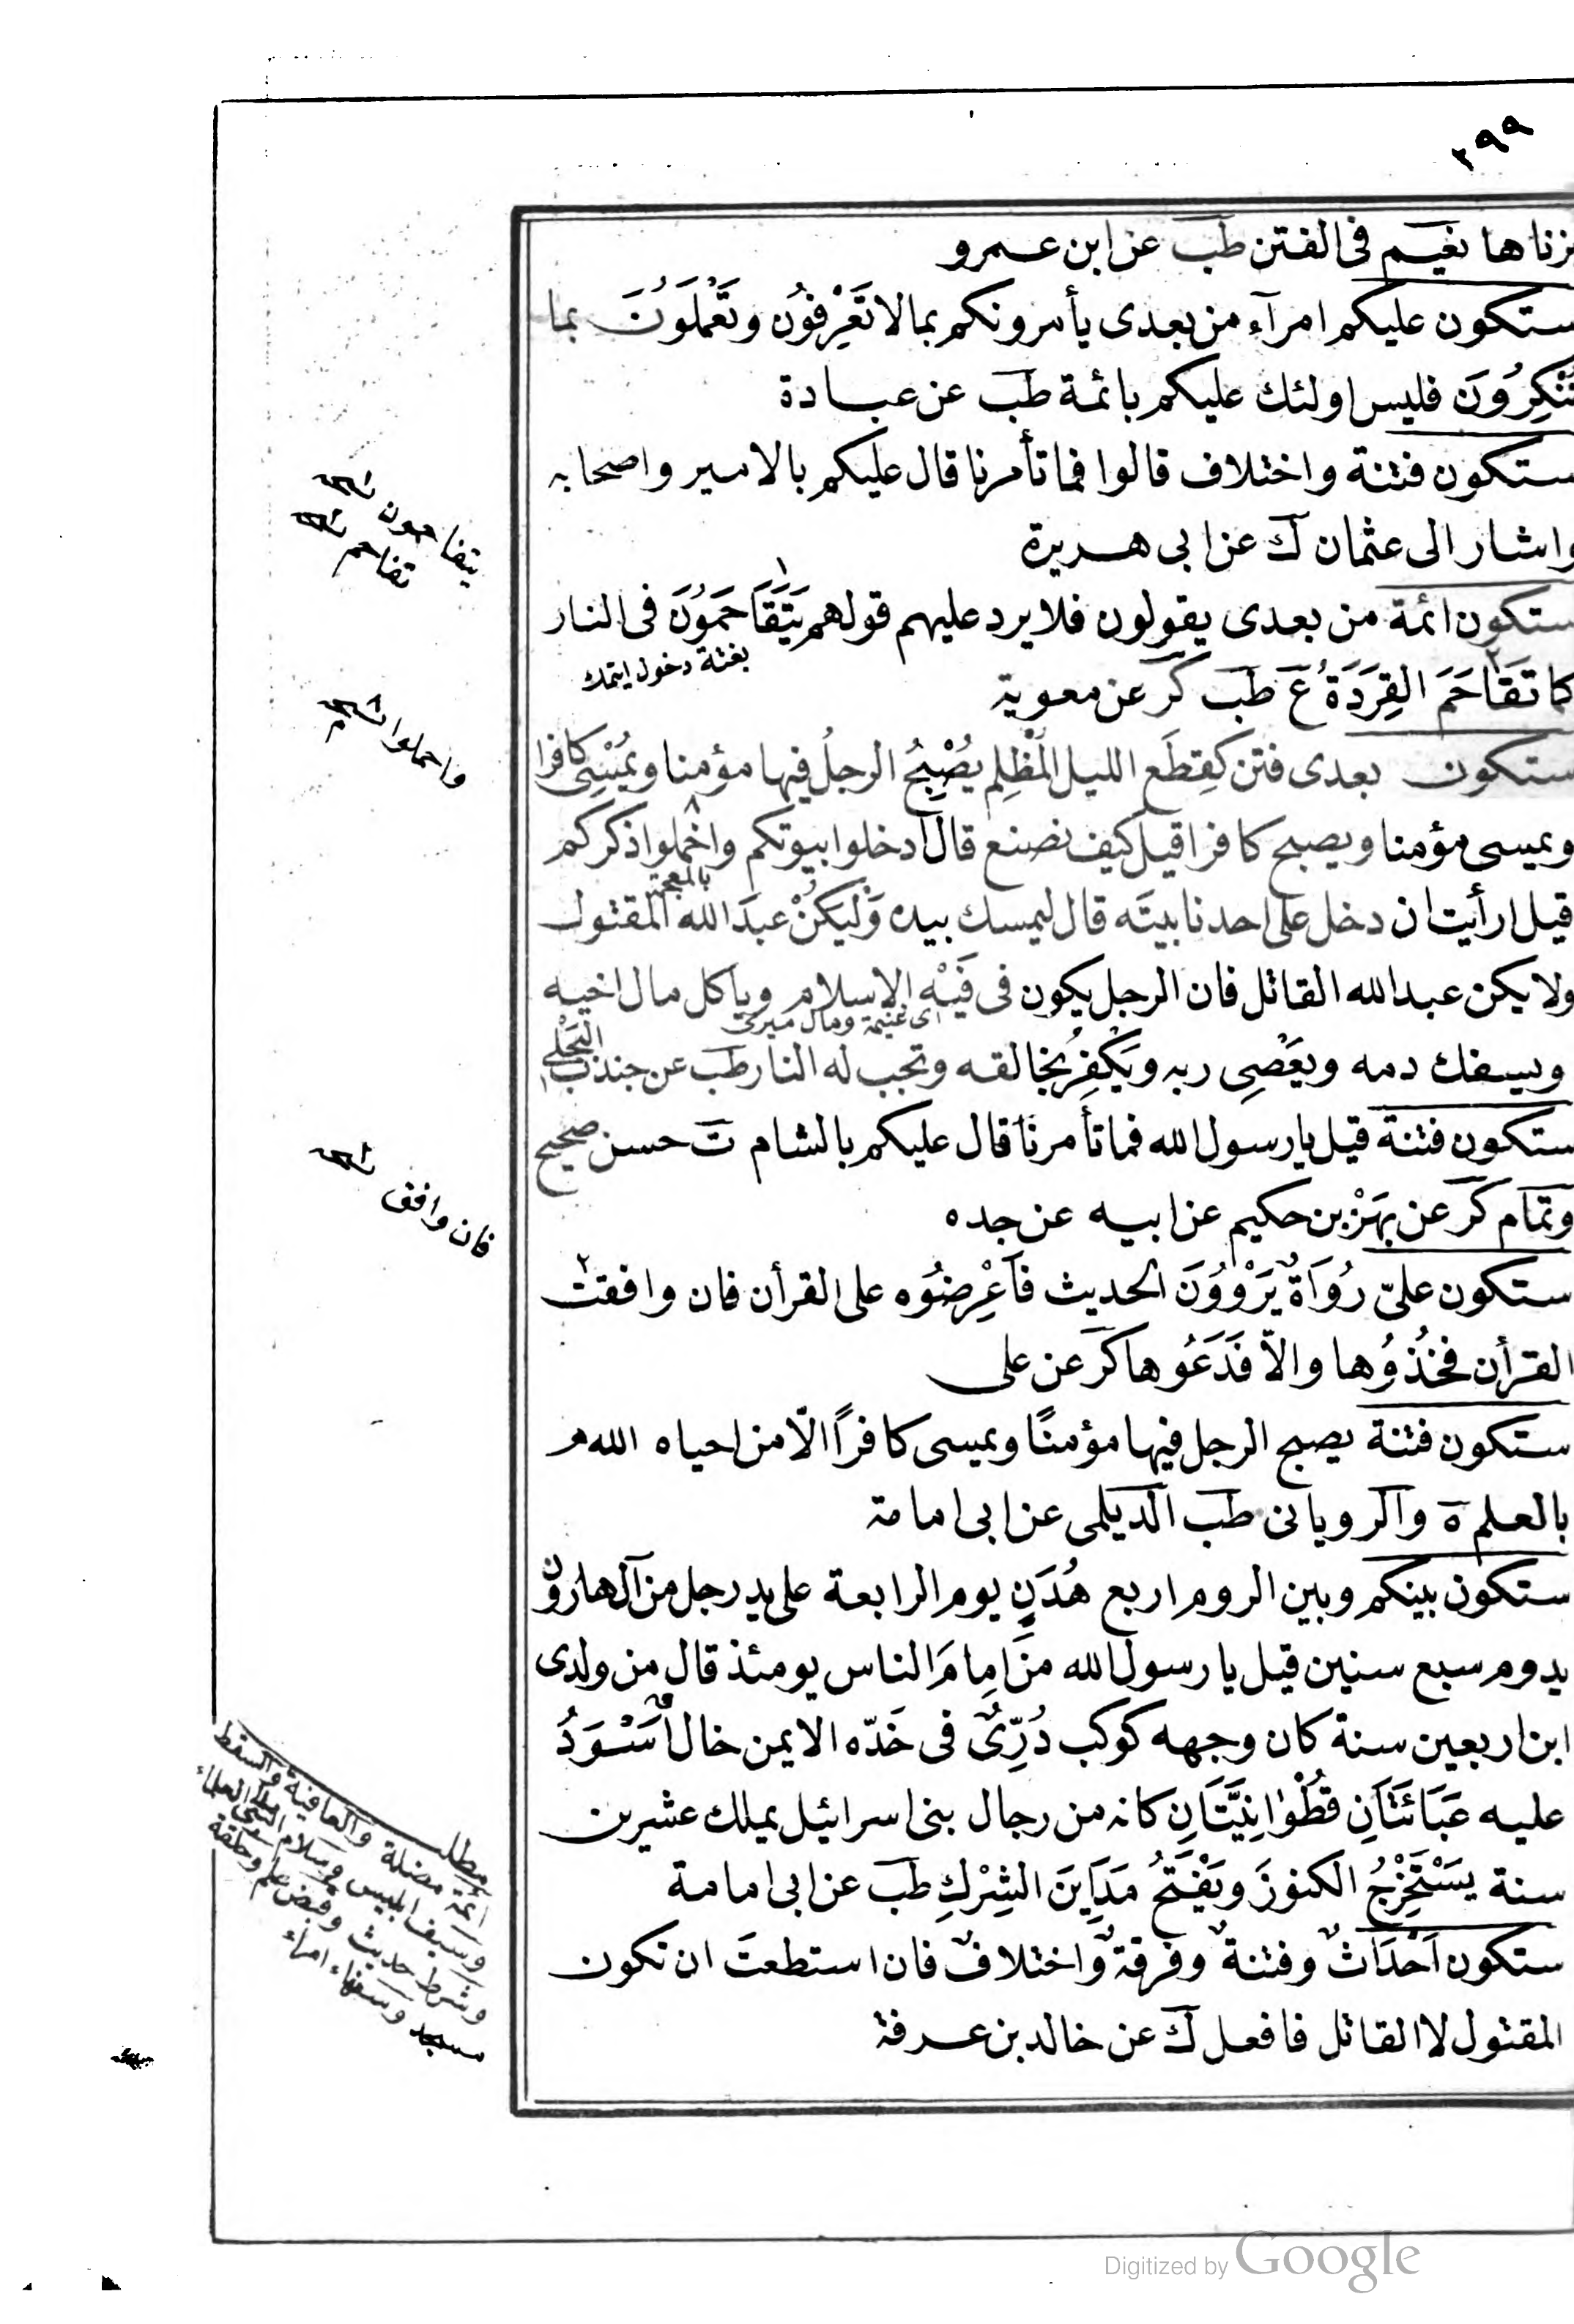 ٢٩٩
زناها نعيم فى الفتن طب عن ابن عمرو
ستكون عليكم امرآء من بعدى يأمرونكم بما لا تَعْرِفُون وتَعْمَلُونَ بما
تُنْكِرُونَ فليس اولئك عليكم بائمة طب عن عبادة
ستكون فتنة واختلاف قالوا فما تأمرنا قال عليكم بالامير واصحابه
واشار الى عثمان ك عن ابى هريرة
ستكون ائمة من بعدى يقولون فلا يرد عليهم قولهم يَتَقَاحَمُونَ فى النار
بغتة دخول ايتمك
كما تَقَاحَمَ القِرَدَةُ ع طب كر عن معوية
ستكون بعدى فتن كقِطَع الليل المُظْلِم يُصْبِحُ الرجلُ فيها مؤمنا ويُمْسِى كافرا
ويمسى مؤمنا ويصبح كافرا قيل كيف نصنع قال ادخلوا بيوتكم واخملوا ذكركم
بالمعجمة
قيل ارأيت ان دخل على احدنا بيتَه قال ليمسك بيده وَلْيَكُنْ عبدَ الله المقتول
ولا يكن عبد الله القاتل فان الرجل يكون فى فَيْهِ الاسلام وياكل مال اخيه
اى غنيمة ومال ميرى
ويسفك دمه ويَعْصِى ربه ويَكْفِرُ بخالقه وتجب له النار طب عن جندب البَجْلى
ستكون فتنة قيل يا رسول الله فما تأمرنا قال عليكم بالشام ت حسن صحيح
وتمام كر عن بَهْز بن حكيم عن ابيه عن جده
ستكون علىّ رُوَاةٌ يَرْوُونَ الحديث فَاَعْرِضُوه على القرأن فان وافقت
القرأن فخُذُوُها والّا فَدَعُوها كر عن على
ستكون فتنة يصبح الرجل فيها مؤمنًا ويمسى كافرًا الّا من احياه الله
بالعلم ه والرويانى طب الديلمى عن ابى امامة
ستكون بينكم وبين الروم اربع هُدَنٍ يوم الرابعة على يد رجل من آل هارون
يدوم سبع سنين قيل يا رسول الله مَن اِمامَ الناس يومئذ قال من ولدى
ابن اربعين سنة كان وجهه كوكب دُرِّىٌ فى خَدّه الايمن خال اَسْوَدُ
عليه عَبَائتَانِ قُطْوَانِيَّتَانِ كانه من رجال بنى اسرائيل يملك عشرين
سنة يَسْتَخْرِجُ الكنوزَ ويَفْتَحُ مَدَايِنَ الشِرْكِ طب عن ابى امامة
ستكون اَحْدَاثٌ وفتنةٌ وفرقةٌ واختلافٌ فان استطعتَ ان تكون
المقتول لا القاتل فافعل ك عن خالد بن عرفة
يتفاحمون
تفاحم
واحملوا
فان وافق
مطلب
ائمة مضلة والعافية والسقط
وسيف ابليس وسلام
وشرط حديث وقبض علم وحلقة
مسجد وسفهاء امرآء
Digitized by Google